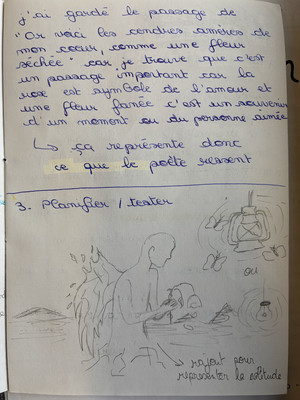 j'ai gardé le passage de
"Or voici les cendres amères de
mon coeur, comme une fleur
séchée" car je trouve que c'est
un passage important car la
rose est symbole de l'amour et
une fleur fanée c'est un souvenir
d'un moment ou du personne aimée
↳ ça représente donc
ce que le poète ressent
3. Planifier / tester
ou
→ rajout pour
représenter la solitude